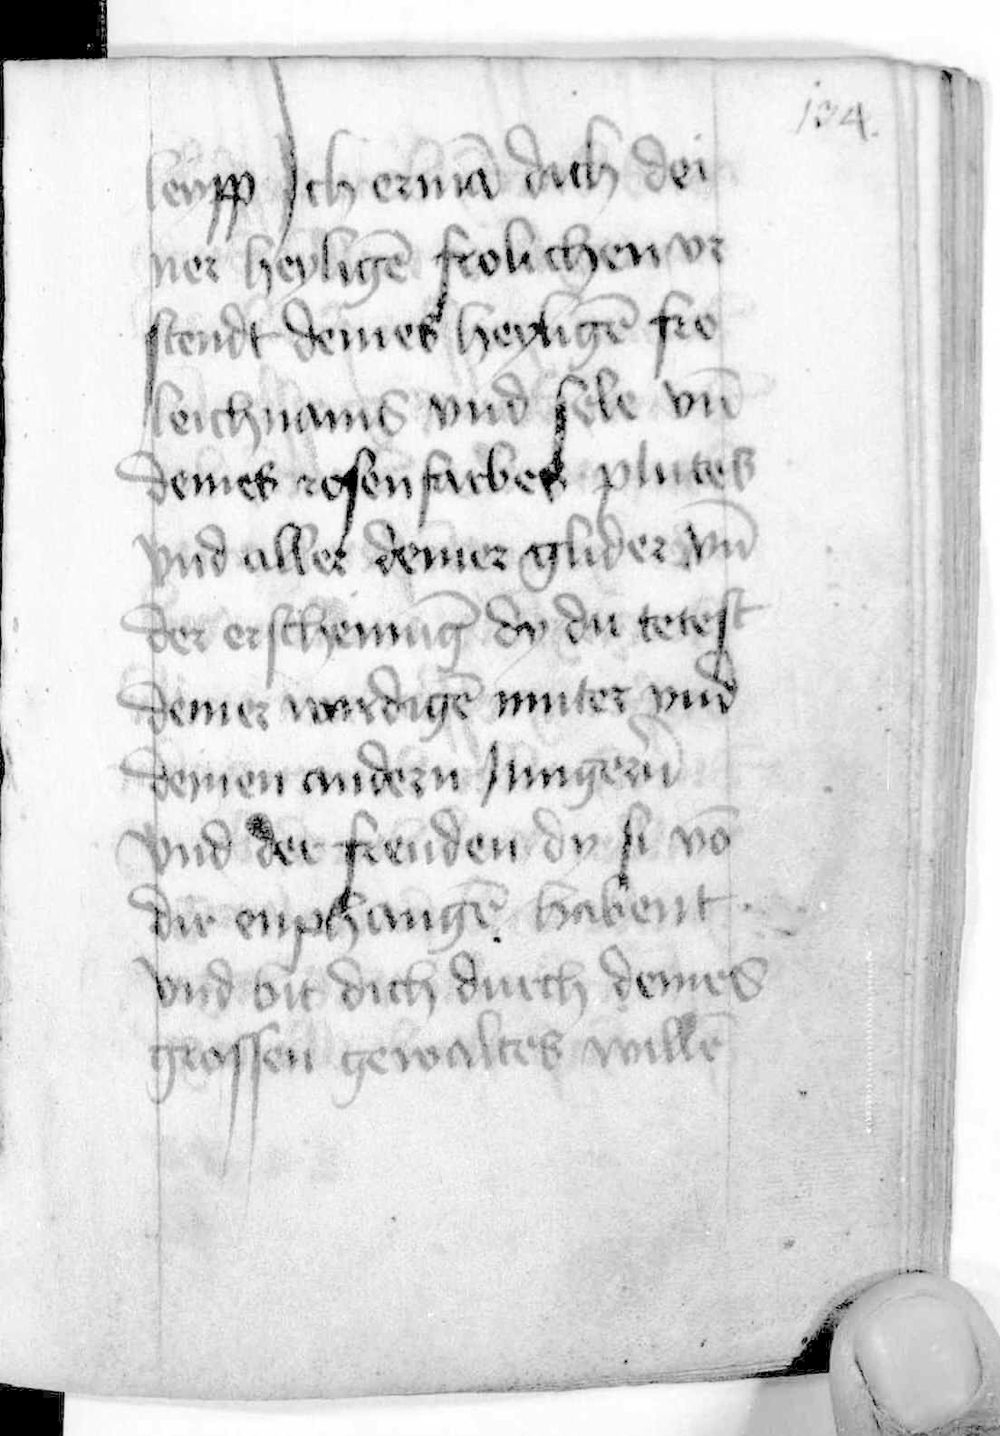 134.
leypp Ich ermā dich dei
ner heyligē frolichen vr
stendt deines heyligē fro
leichnams vnd sele vn̄
deines rosenfarbes plutes
vnd aller deiner glider vn̄
der erscheinūg dy du tetest
deiner wirdigē muter vnd
deinen andern Jungern̄
vnd der freuden dy si vō
dir enphangē habent
vnd bit dich durch deines
grossen gewaltes willē